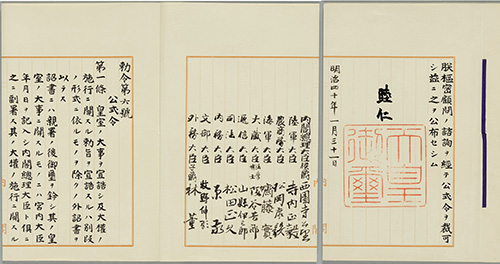 朕樞密顧問ノ諮詢ヲ經テ公式令ヲ裁可
シ茲ニ之ヲ公布セシム
睦仁
天皇
御璽
明治四十年一月三十一日
內閣總理大臣侯爵西園寺公望
陸軍大臣 寺內正毅
農商務大臣 松岡康毅
海軍大臣 齋藤實
大藏大臣 阪谷芳郎
遞信大臣 山縣伊三郎
司法大臣 松田正久
內務大臣 原敬
文部大臣 牧野伸顯
外務大臣子爵 林董
勅令第六號
公式令
第一條 皇室ノ大事ヲ宣誥シ及大權ノ
施行ニ關スル勅旨ヲ宣誥スルハ別段
ノ形式ニ依ルモノヲ除クノ外詔書ヲ
以テス
詔書ニハ親署ノ後御璽ヲ鈐シ其ノ皇
室ノ大事ニ關スルモノニハ宮內大臣
年月日ヲ記入シ內閣總理大臣ト俱ニ
之ニ副署ス其ノ大權ノ施行ニ關スル